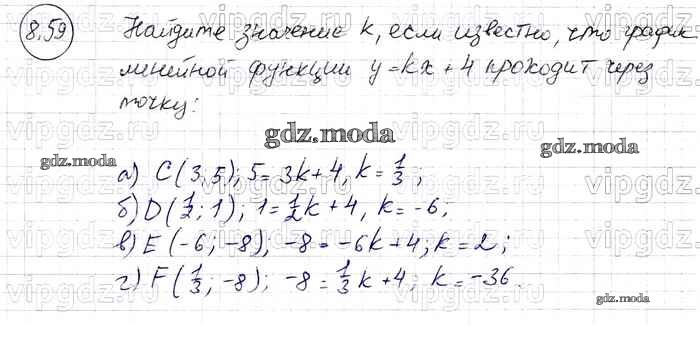 8.59 Найдите значение k, если известно, что график
линейной функции y=kx+4 проходит через
точку:
gdz.moda
gdz.moda
gdz.moda
а) C(3,5); 5=3k+4, k=1/3;
б) D(1/2; 1); 1=1/2k+4, k=-6;
в) E(-6; -8), -8=-6k+4; k=2;
г) F(1/3; -8); -8=1/3k+4; k=-36.
gdz.moda
vipgdz.ru